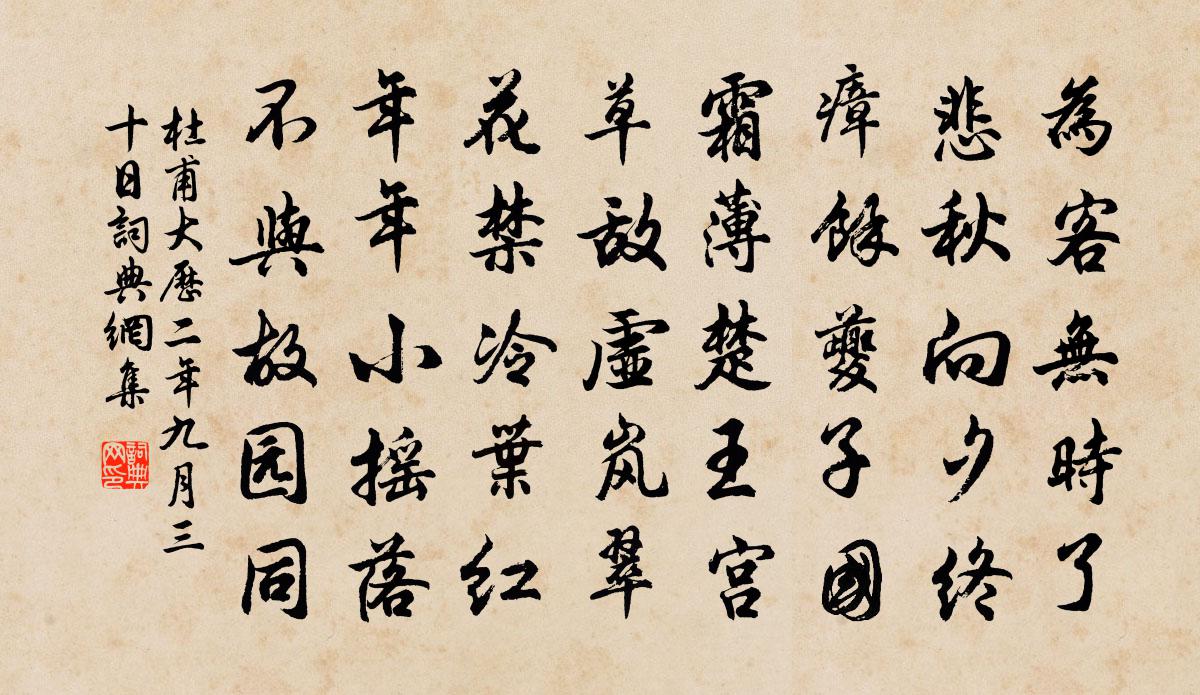 為客無時了
悲秋向夕終
瘴餘夔子國
霜薄楚王宮
草敌虚岚翠
花禁冷葉红
年年小摇落
不與故园同
杜甫大歷二年九月三
十日詞典網集
詞典
网印